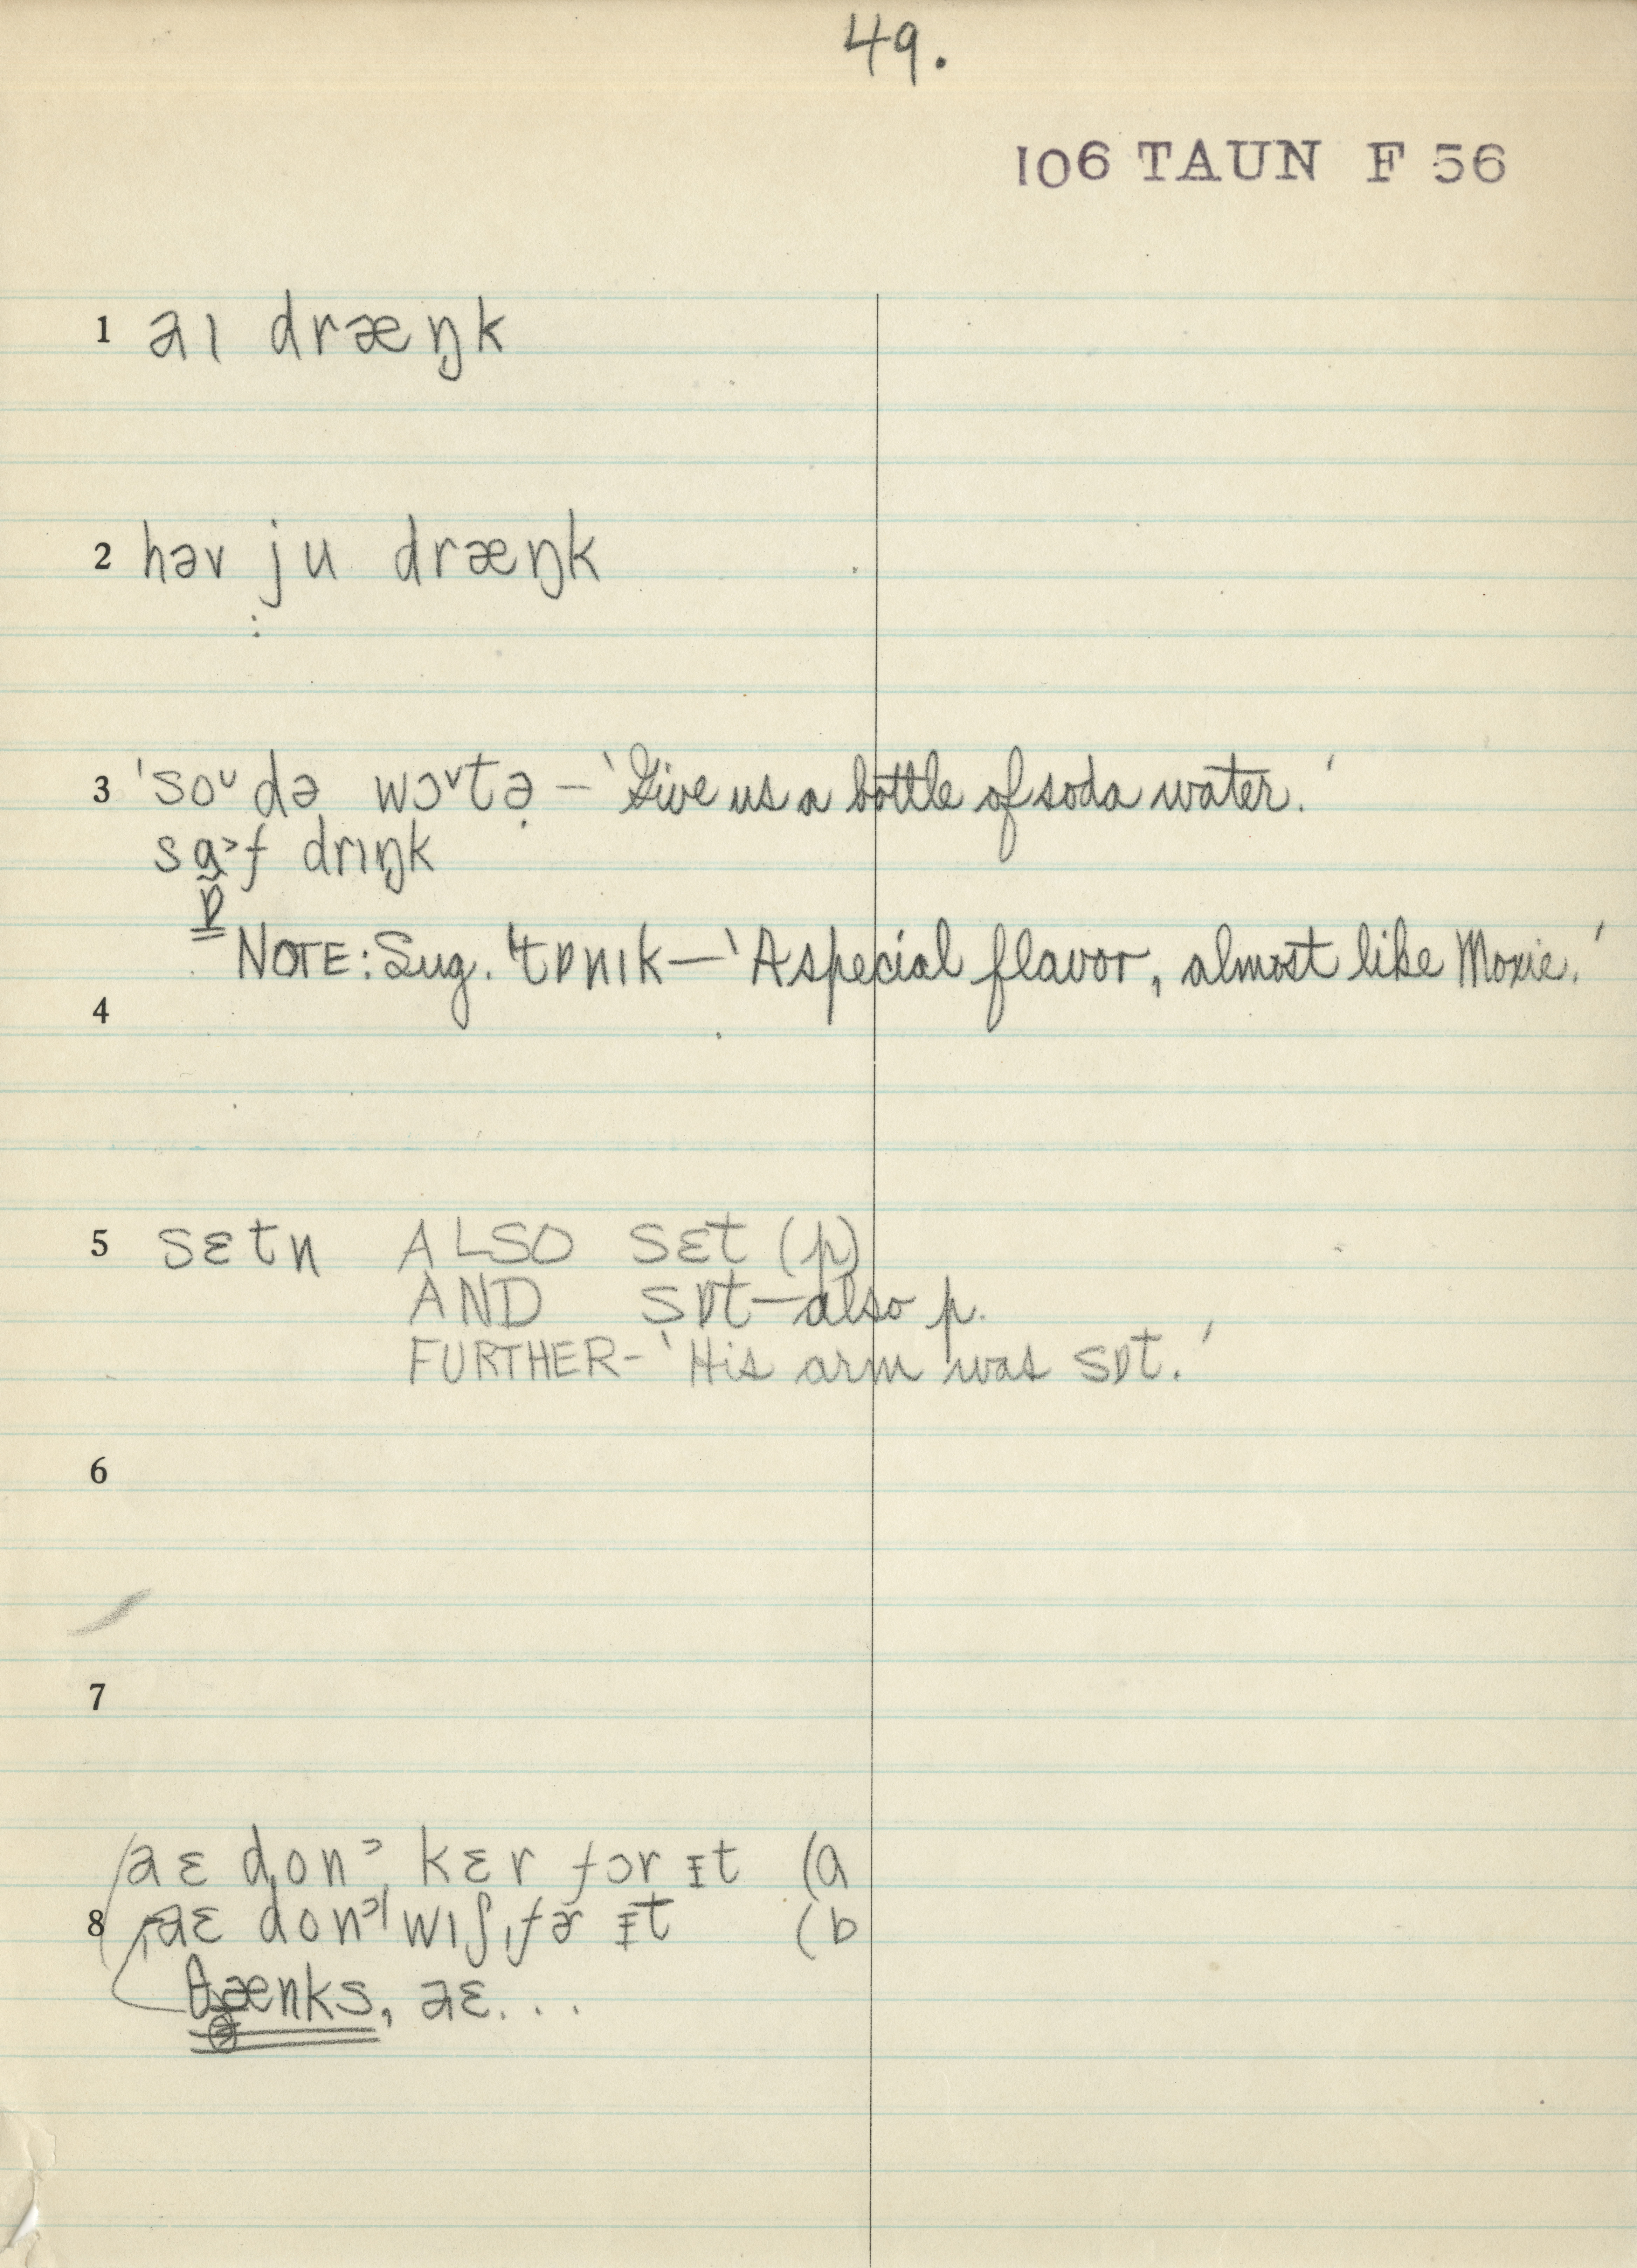 49.
106 TAUN F 56
1 aɪ dræŋk
2 həv ju dræŋk
3 ˈsoᵘdə wɔᵛtə – 'Give us a bottle of soda water.'
sɑ˃f drɪŋk
ɒ
NOTE: Sug. ˈtɒnɪk – 'A special flavor, almost like Moxie.'
4
5 sɛtn ALSO sɛt (p)
AND sɒt – also p.
FURTHER – 'His arm was sɒt.'
6
7
aɛ donˀ kɛr fɔr ɪt (a
8 aɛ donˀ wɪʃ fə ɪt (b
θænks, aɛ...